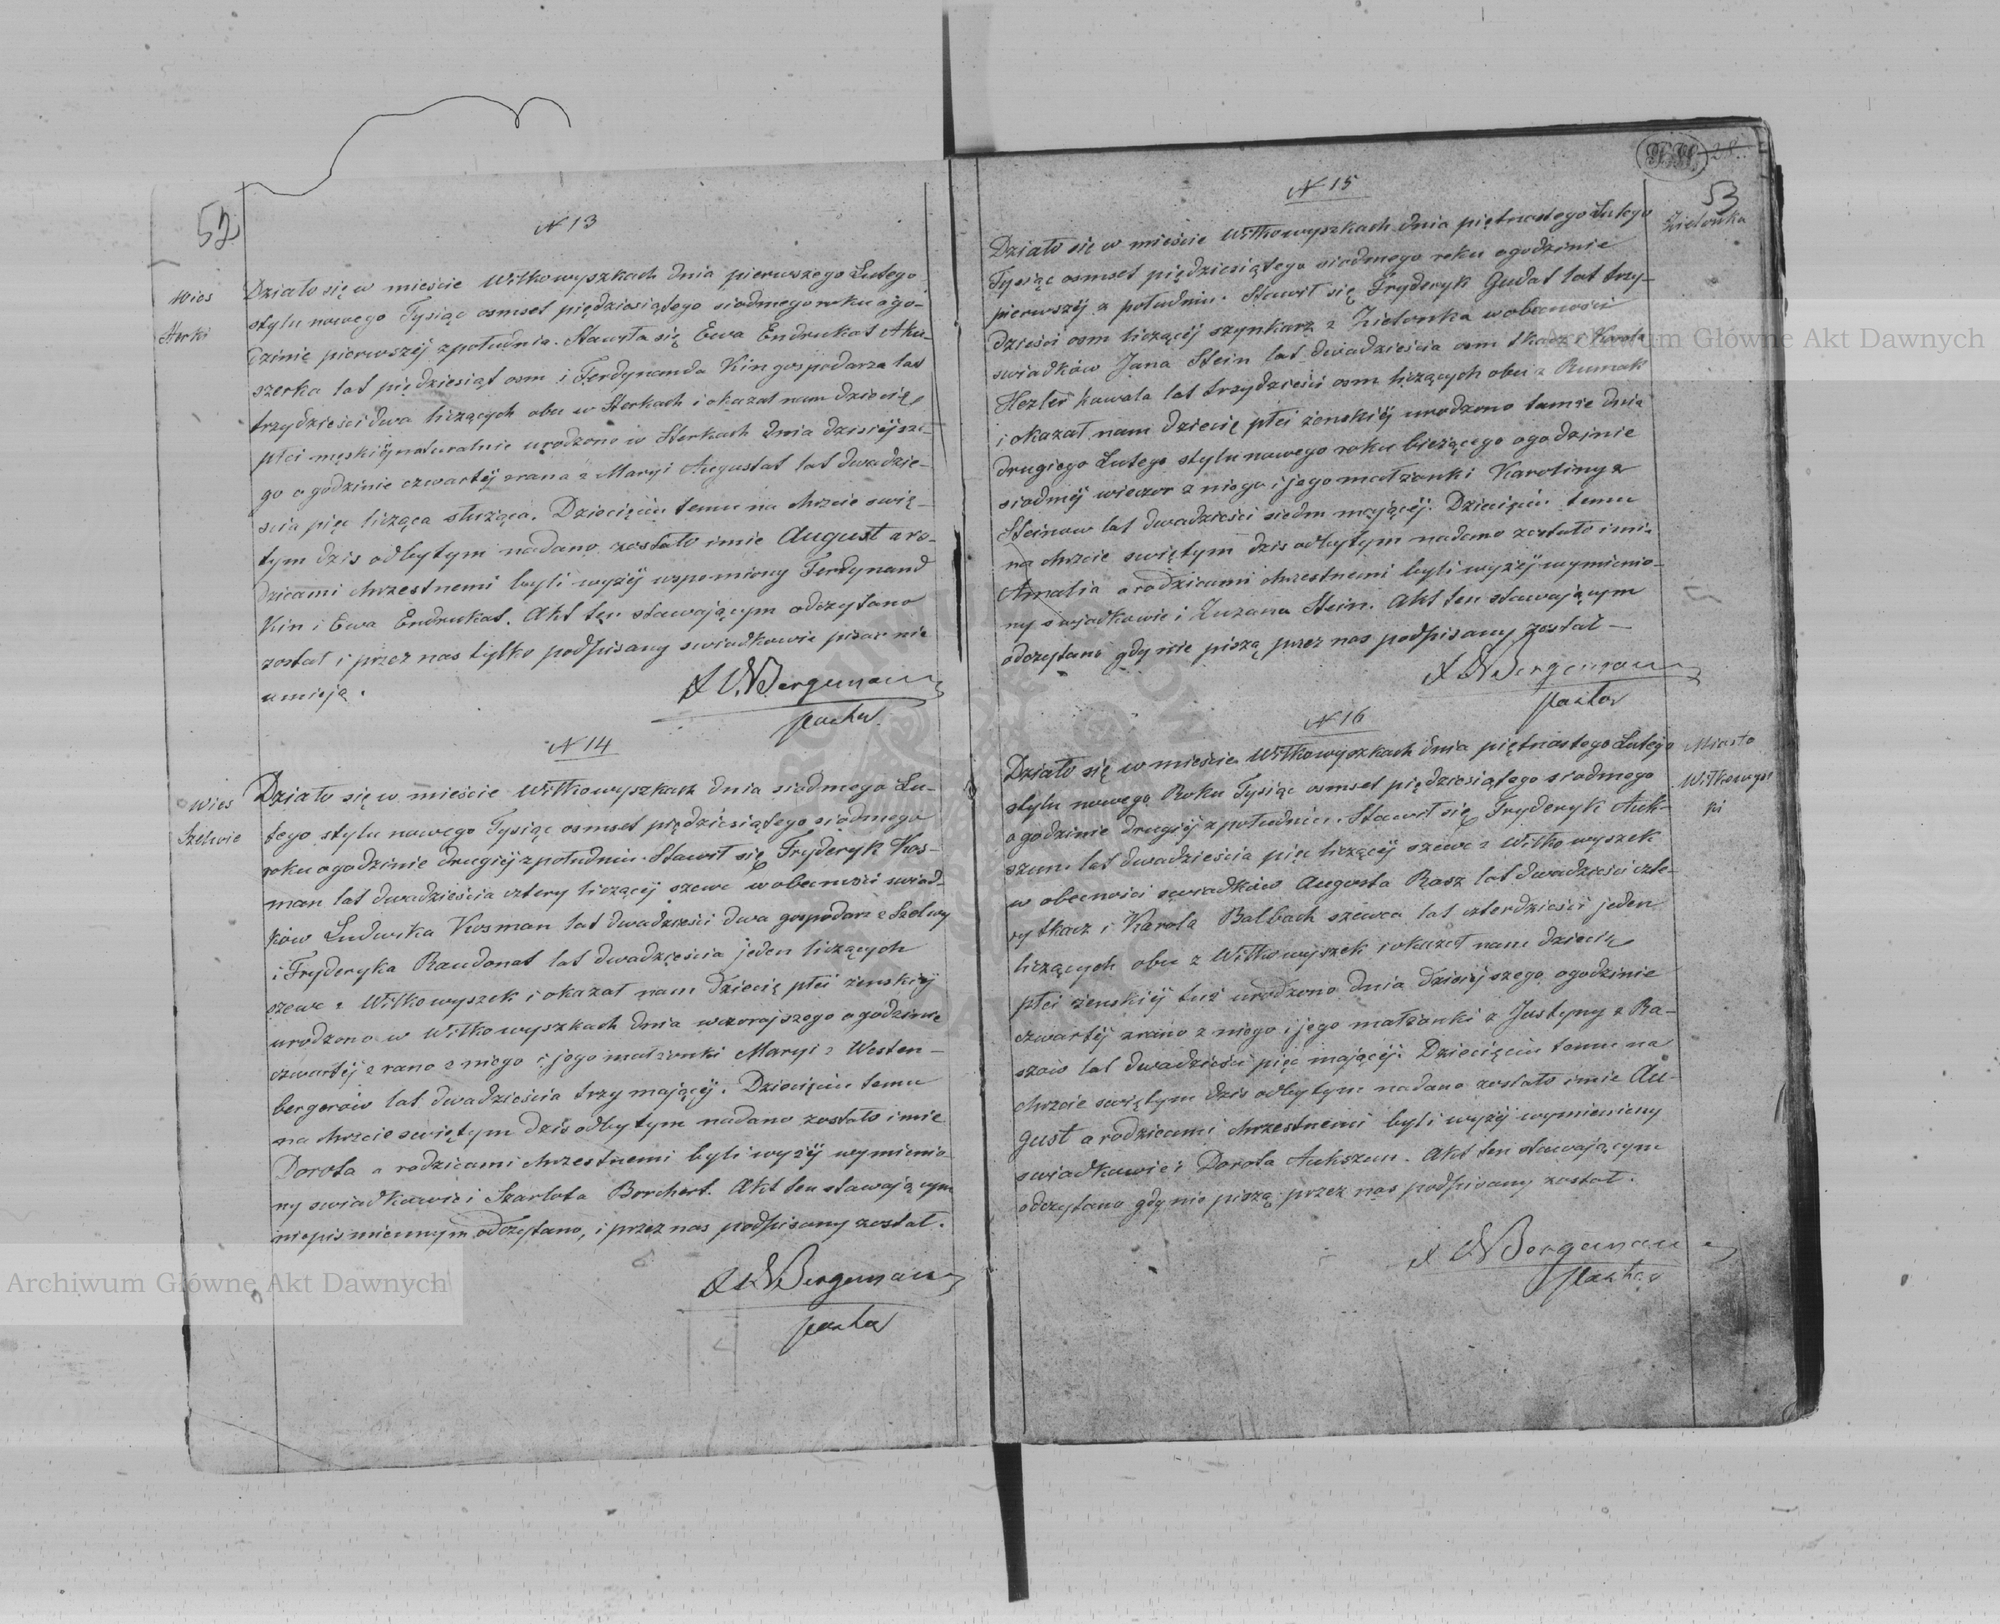 52
N 13
Wies
Sterki
Działo się w mieście Wiłkowyszkach dnia pierwszego Lutego
stylu nowego Tysiąc osmset pięćdziesiątego siodmego roku o go-
dzinie pierwszéj z południa. Stawiła się Ewa Endrukat Aku-
szerka lat pięćdziesiąt osm i Ferdynanda Kin gospodarza lat
trzydzieści dwa liczących obu w Sterkach i okazał nam dziecię
płci męskiéj naturalnie urodzone w Sterkach dnia dzisiéjsze-
go o godzinie czwartéj zrana z Maryi Augustat lat dwadzie-
scia pięc licząca służąca. Dziecięciu temu na chrzcie swię-
tym dzis odbytym nadano zostało imie August a ro-
dzicami chrzestnemi byli wyżéj wspomiony Ferdynand
Kin i Ewa Endrukat. Akt ten stawającym odczytano
został i przez nas tylko podpisany swiadkowie pisac nie
umieją.
Bergemann
pastor
N 14
Wies
Szelwie
Działo się w mieście Wiłkowyszkach dnia siodmego Lu-
tego stylu nowego Tysiąc osmset pięćdziesiątego siodmego
roku o godzinie drugiéj z południa. Stawił się Fryderyk Kos-
man lat dwadzieścia cztery liczącéj szewc w obecności swiad-
ków Ludwika Kosman lat dwadzieści dwa gospodarz z Szelwy
i Fryderyka Raudonat lat dwadzieścia jeden liczących
szewc z Wiłkowyszek i okazał nam dziecię płci żenskiéj
urodzone w Wiłkowyszkach dnia wczorajszego o godzinie
czwartéj z rana z niego i jego małżonki Maryi z Westen-
bergerów lat dwadzieścia trzy mającéj. Dziecięciu temu
na chrzcie swiętym dzis odbytym nadano zostało imie
Dorota a rodzicami chrzestnemi byli wyżéj wymienio-
ny swiadkowie i Szarlota Borchert. Akt ten stawającym
niepismiennym odczytano, i przez nas podpisany został.
Bergemann
pastor
28.
53
N 15
Zielonka
Działo się w mieście Wiłkowyszkach dnia piętnastego Lutego
Tysiąc osmset pięćdziesiątego siodmego roku o godzinie
pierwszéj z południu. Stawił się Fryderyk Gudat lat trzy-
dzieści osm liczącéj szynkarz z Zielonka w obecności
swiadków Jana Stein lat dwadzieścia osm tkacz i Karola
Hezler kowala lat trzydzieści osm liczących obu z Rumak
i okazał nam dziecię płci żenskiéj urodzono tamże dnia
drugiego Lutego stylu nowego roku bieżącego o godzinie
siodméj wieczor z niego i jego małżonki Karoliny z
Steinow lat dwadzieści siedm mającéj. Dziecięciu temu
na chrzcie swiętym dzis odbytym nadano zostało imie
Amalia a rodzicami chrzestnemi byli wyżéj wymienio-
ny swiadkowie i Zuzana Stein. Akt ten stawającym
odczytano gdy nie piszą przez nas podpisany został —
Bergemann
pastor
N 16
Miasto
Wiłkowysz
ki
Działo się w mieście Wiłkowyszkach dnia piętnastego Lutego
stylu nowego Roku Tysiąc osmset pięćdziesiątego siodmego
o godzinie drugiéj z południu. Stawił się Fryderyk Auk-
szun lat dwadzieścia pięc liczącéj szewc z Wiłkowyszek
w obecności swiadków Augusta Rasz lat dwadzieści czte-
ry tkacz i Karola Balbach szewca lat czterdzieści jeden
liczących obu z Wiłkowyszek i okazał nam dziecię
płci żenskiéj tuż urodzono dnia dzisiéjszego o godzinie
czwartéj zrano z niego i jego małżonki z Justyny z Ra-
szów lat dwadzieści pięc mającéj. Dziecięciu temu na
chrzcie swiętym dzis odbytym nadano zostało imie Au-
gust a rodzicami chrzestnemi byli wyżéj wymieniony
swiadkowie i Dorota Aukszun. Akt ten stawającym
odczytano gdy nie piszą przez nas podpisany został.
Bergemann
pastor
Archiwum Główne Akt Dawnych
Archiwum Główne Akt Dawnych